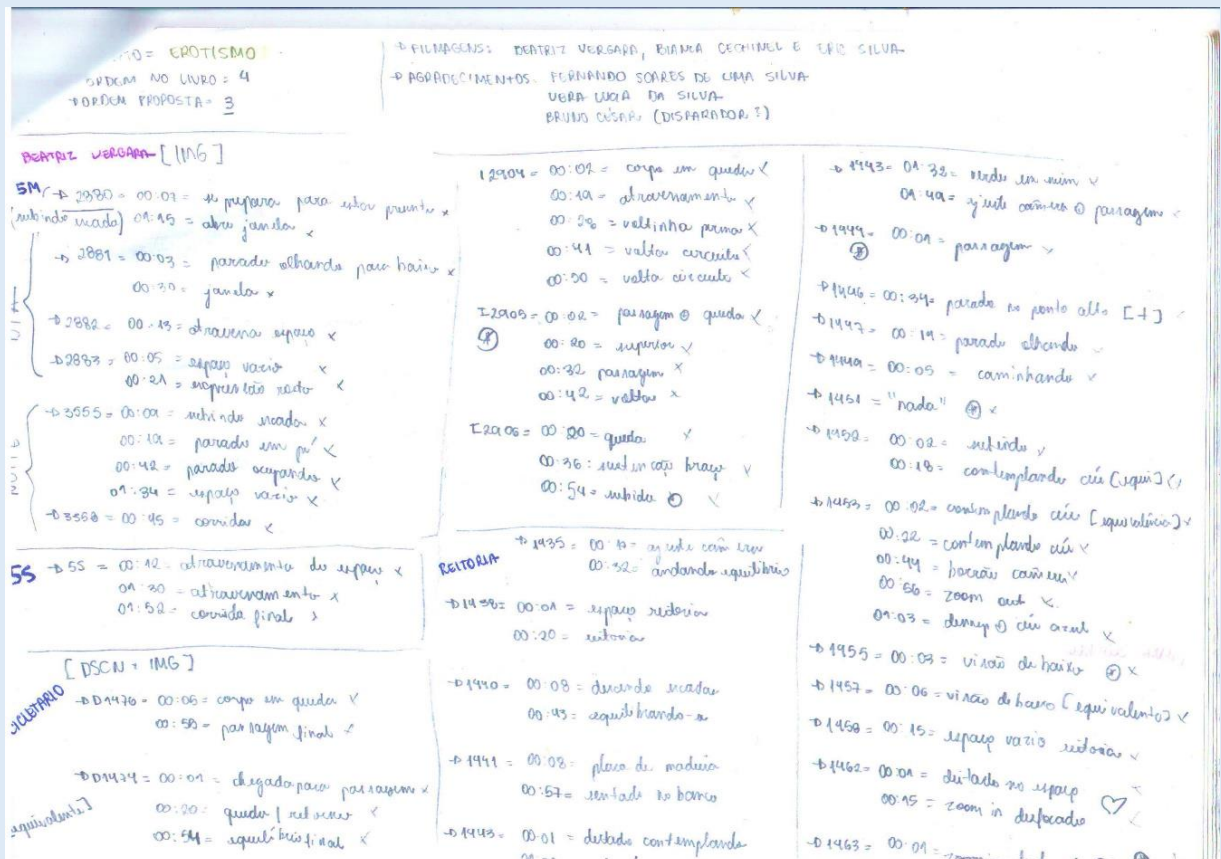 = EROTISMO
ORDEM NO LIVRO = 4
ORDEM PROPOSTA = 3
FILMAGENS: BEATRIZ VERGARA, BIANCA CECHINEL E ERIC SILVA
AGRADECIMENTOS: FERNANDO SOARES DE LIMA SILVA
VERA LUCIA DA SILVA
BRUNO CÉSAR (DISPARADOR?)
BEATRIZ VERGARA [IMG]
5M
2880 = 00:07 = se prepara para estar presente x
(subindo escada) 01:15 = abre janela x
2881 = 00:03 = parado olhando para baixo x
00:30 = janela x
2882 = 00:13 = atravessa espaço x
2883 = 00:05 = espaço vazio x
00:21 = rosto x
3555 = 00:09 = subindo escada x
00:19 = parado em pé x
00:42 = parado ocupando x
01:34 = espaço vazio x
3568 = 00:45 = corridor x
5S
5S = 00:12 = atravessamento do espaço x
01:30 = atravessamento x
01:52 = corrida final x
[DSCN + IMG]
D1476 = 00:06 = corpo em queda x
00:50 = passagem final x
D1474 = 00:01 = chegada para passagem x
00:20 = queda |
00:54 = equilíbrio final x
I2904 = 00:02 = corpo em queda x
00:19 = atravessamento x
00:28 = voltinha perna x
00:41 = volta circuito x
00:50 = volta circuito x
I2905 = 00:02 = passagem queda x
00:20 = superior x
00:32 passagem x
00:42 = voltar x
I2906 = 00:20 = queda x
00:36 = sustentação braço x
00:54 = subida x
REITORIA
1435 = 00:17 = ajuste camera
00:32 = andando equilíbrio
D1438 = 00:01 = espaço reitoria
00:20 = reitoria
D1440 = 00:08 = descendo escadas
00:43 = equilibrando-se
1441 = 00:08 = placa de madeira
00:57 = sentado no banco
D1443 = 00:01 = deitado contemplando
1443 = 01:32 = verde em mim x
01:49 = ajuste câmera passagem x
1444 = 00:01 = passagem x
1446 = 00:34 = parado no ponto alto [+]
1447 = 00:19 = parado olhando
1449 = 00:05 = caminhando x
1451 = "nada" x
1452 = 00:02 = subindo x
00:18 = contemplando céu [equi]
1453 = 00:02 = contemplando céu [equivalência] x
00:22 = contemplando céu x
00:44 = borrão camera x
00:56 = zoom out x
01:03 = céu azul x
1455 = 00:03 = visão de baixo x
1457 = 00:06 = visão de baixo [equivalente] x
1458 = 00:15 = espaço vazio reitoria x
1462 = 00:01 = deitado no espaço
00:15 = zoom in desfocado
1463 = 00:01 =